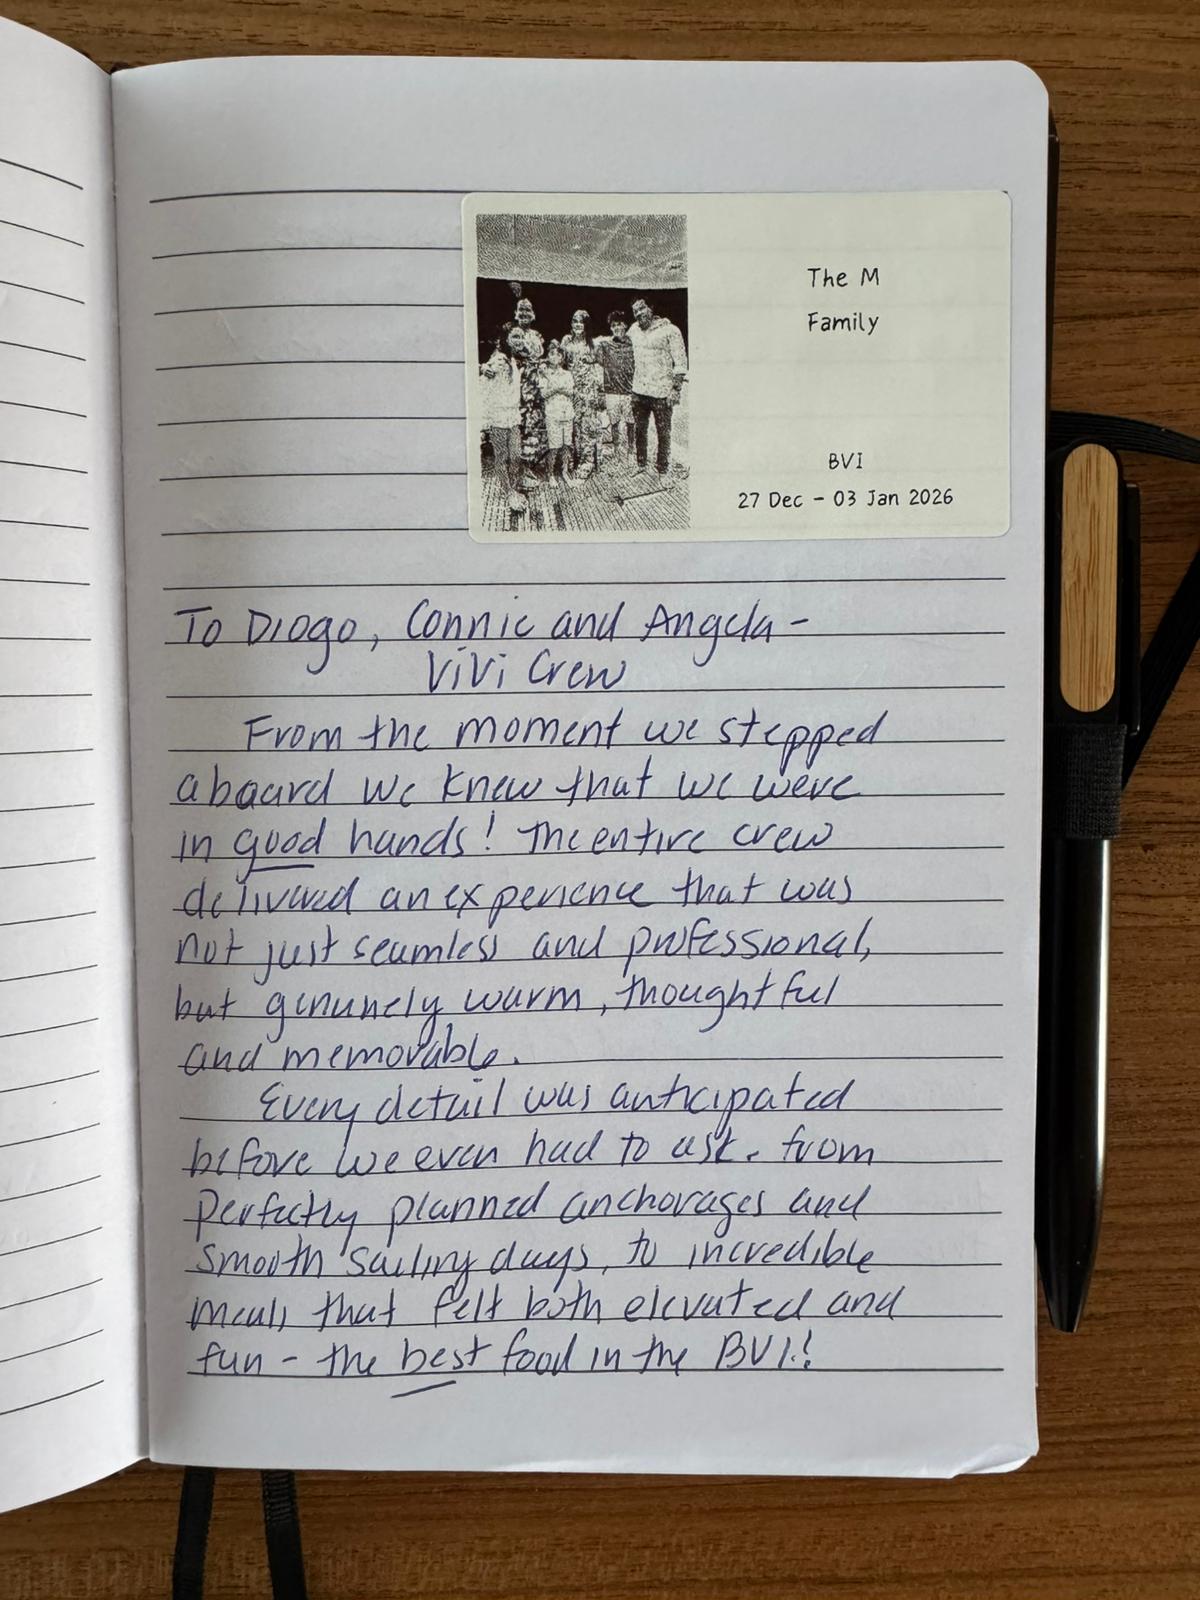 The M
Family
BVI
27 Dec - 03 Jan 2026
To Diogo, Connie and Angela -
ViVi Crew
From the moment we stepped
aboard we knew that we were
in good hands! The entire crew
delivered an experience that was
not just seamless and professional,
but genunely warm, thoughtful
and memorable.
Every detail was anticipated
before we even had to ask. from
perfectly planned anchorages and
smooth sailing days, to incredible
meals that felt both elevated and
fun - the best food in the BVI!